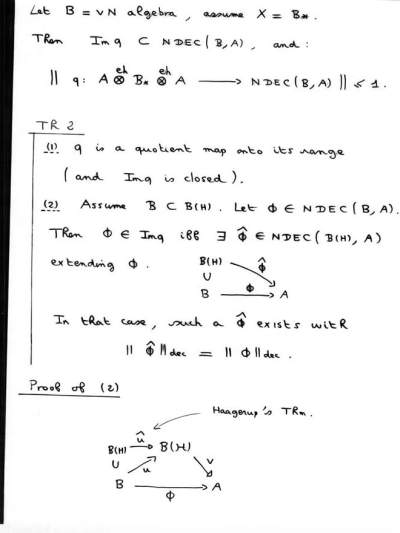 Let B = vN algebra, assume X = B*.
Then Im q ⊂ NDEC(B,A), and:
‖ q: A ⊗^eh B* ⊗^eh A ⟶ NDEC(B,A) ‖ ≤ 1.
TR 2
(1) q is a quotient map onto its range
(and Im q is closed).
(2) Assume B ⊂ B(H). Let Φ ∈ NDEC(B,A).
Then Φ ∈ Im q iff ∃ Φ̂ ∈ NDEC(B(H), A)
extending Φ.
B(H) Φ̂
∪
B Φ A
In that case, such a Φ̂ exists witR
‖ Φ̂ ‖dec = ‖ Φ ‖dec.
Proof of (2)
Haagerup's TRm.
û
B(H) B(H)
∪ u v
B A
Φ